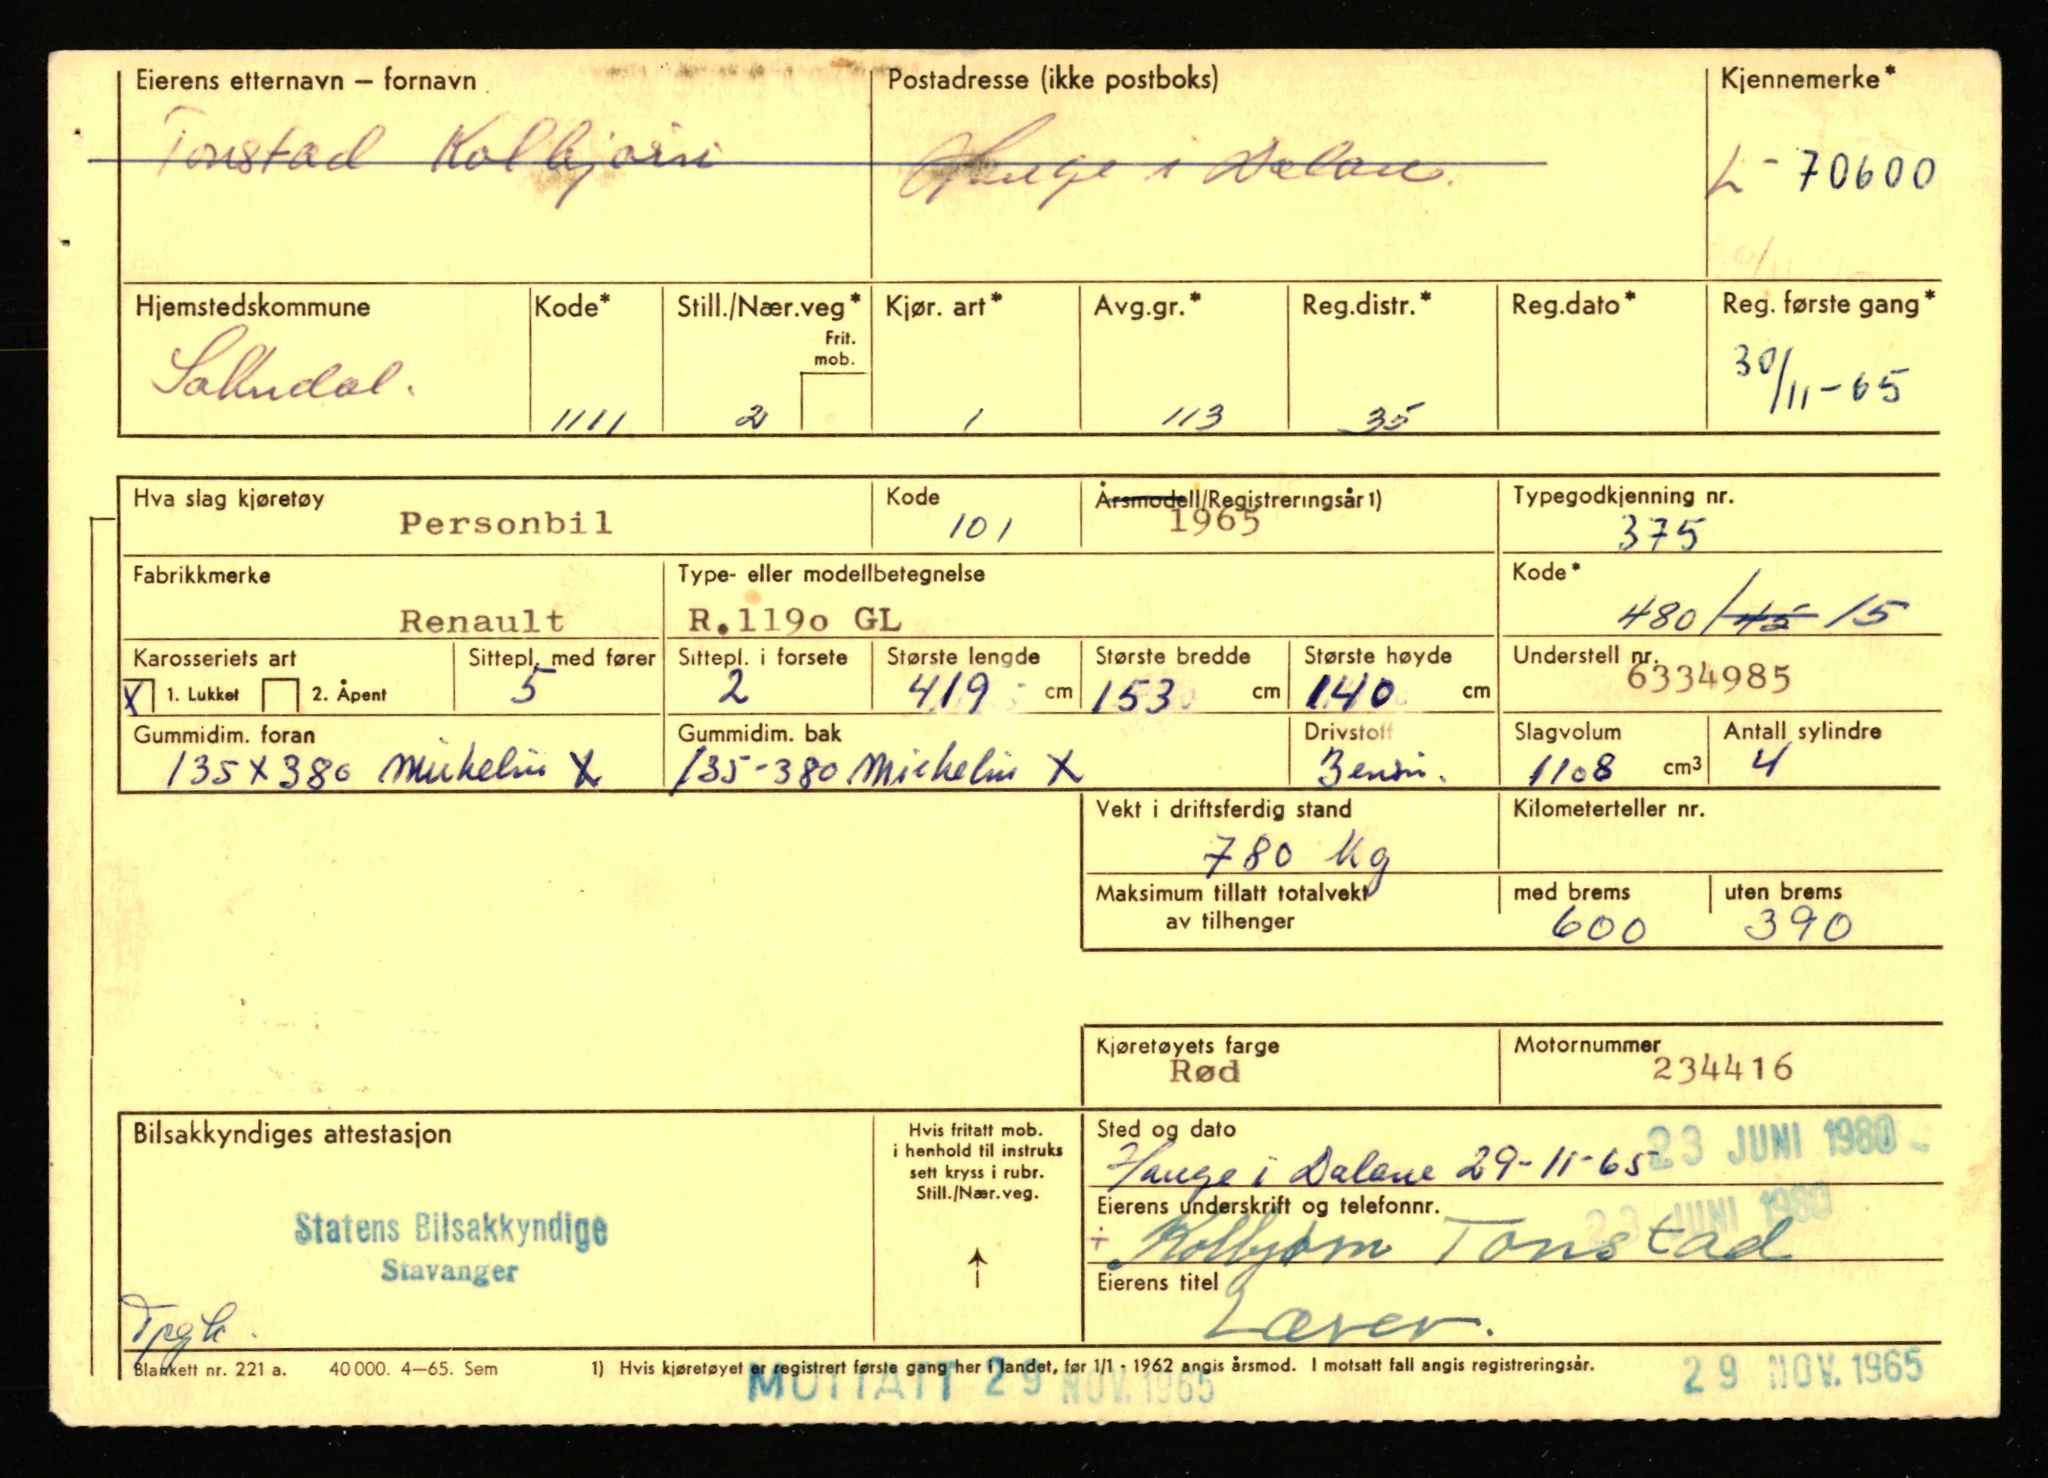 Eierens etternavn – fornavn Postadresse (ikke postboks) Kjennemerke*
Tonstad Kolbjørn Hauge i Dalane. L- 70600
Hjemstedskommune Kode* Still./Nær.veg* Kjør. art* Avg.gr.* Reg.distr.* Reg.dato* Reg. første gang*
Frit.
mob.
Sokndal. 1111 2 1 113 35 30/11-65
Hva slag kjøretøy Kode Årsmodell/Registreringsår 1) Typegodkjenning nr.
Personbil 101 1965 375
Fabrikkmerke Type- eller modellbetegnelse Kode*
Renault R.119o GL 480/45 15
Karosseriets art Sittepl. med fører Sittepl. i forsete Største lengde Største bredde Største høyde Understell nr.
X 1. Lukket 2. Åpent 5 2 419 cm 153 cm 140 cm 6334985
Gummidim. foran Gummidim. bak Drivstoff Slagvolum Antall sylindre
135x380 Michelin X 135-380 Michelin X Bensin. 1108 cm3 4
Vekt i driftsferdig stand Kilometerteller nr.
780 kg
Maksimum tillatt totalvekt med brems uten brems
av tilhenger 600 390
Kjøretøyets farge Motornummer
Rød 234416
Bilsakkyndiges attestasjon Hvis fritatt mob. Sted og dato 23 JUNI 1980
i henhold til instruks
sett kryss i rubr. Hauge i Dalane 29-11-65
Still./Nær.veg. Eierens underskrift og telefonnr. 23 JUNI 1980
Statens Bilsakkyndige + Kolbjørn Tonstad
Stavanger Eierens titel
Lærer.
Tpgk.
Blankett nr. 221 a. 40 000. 4–65. Sem 1) Hvis kjøretøyet er registrert første gang her i landet, før 1/1 - 1962 angis årsmod. I motsatt fall angis registreringsår.
MOTTATT 29 NOV. 1965 29 NOV. 1965